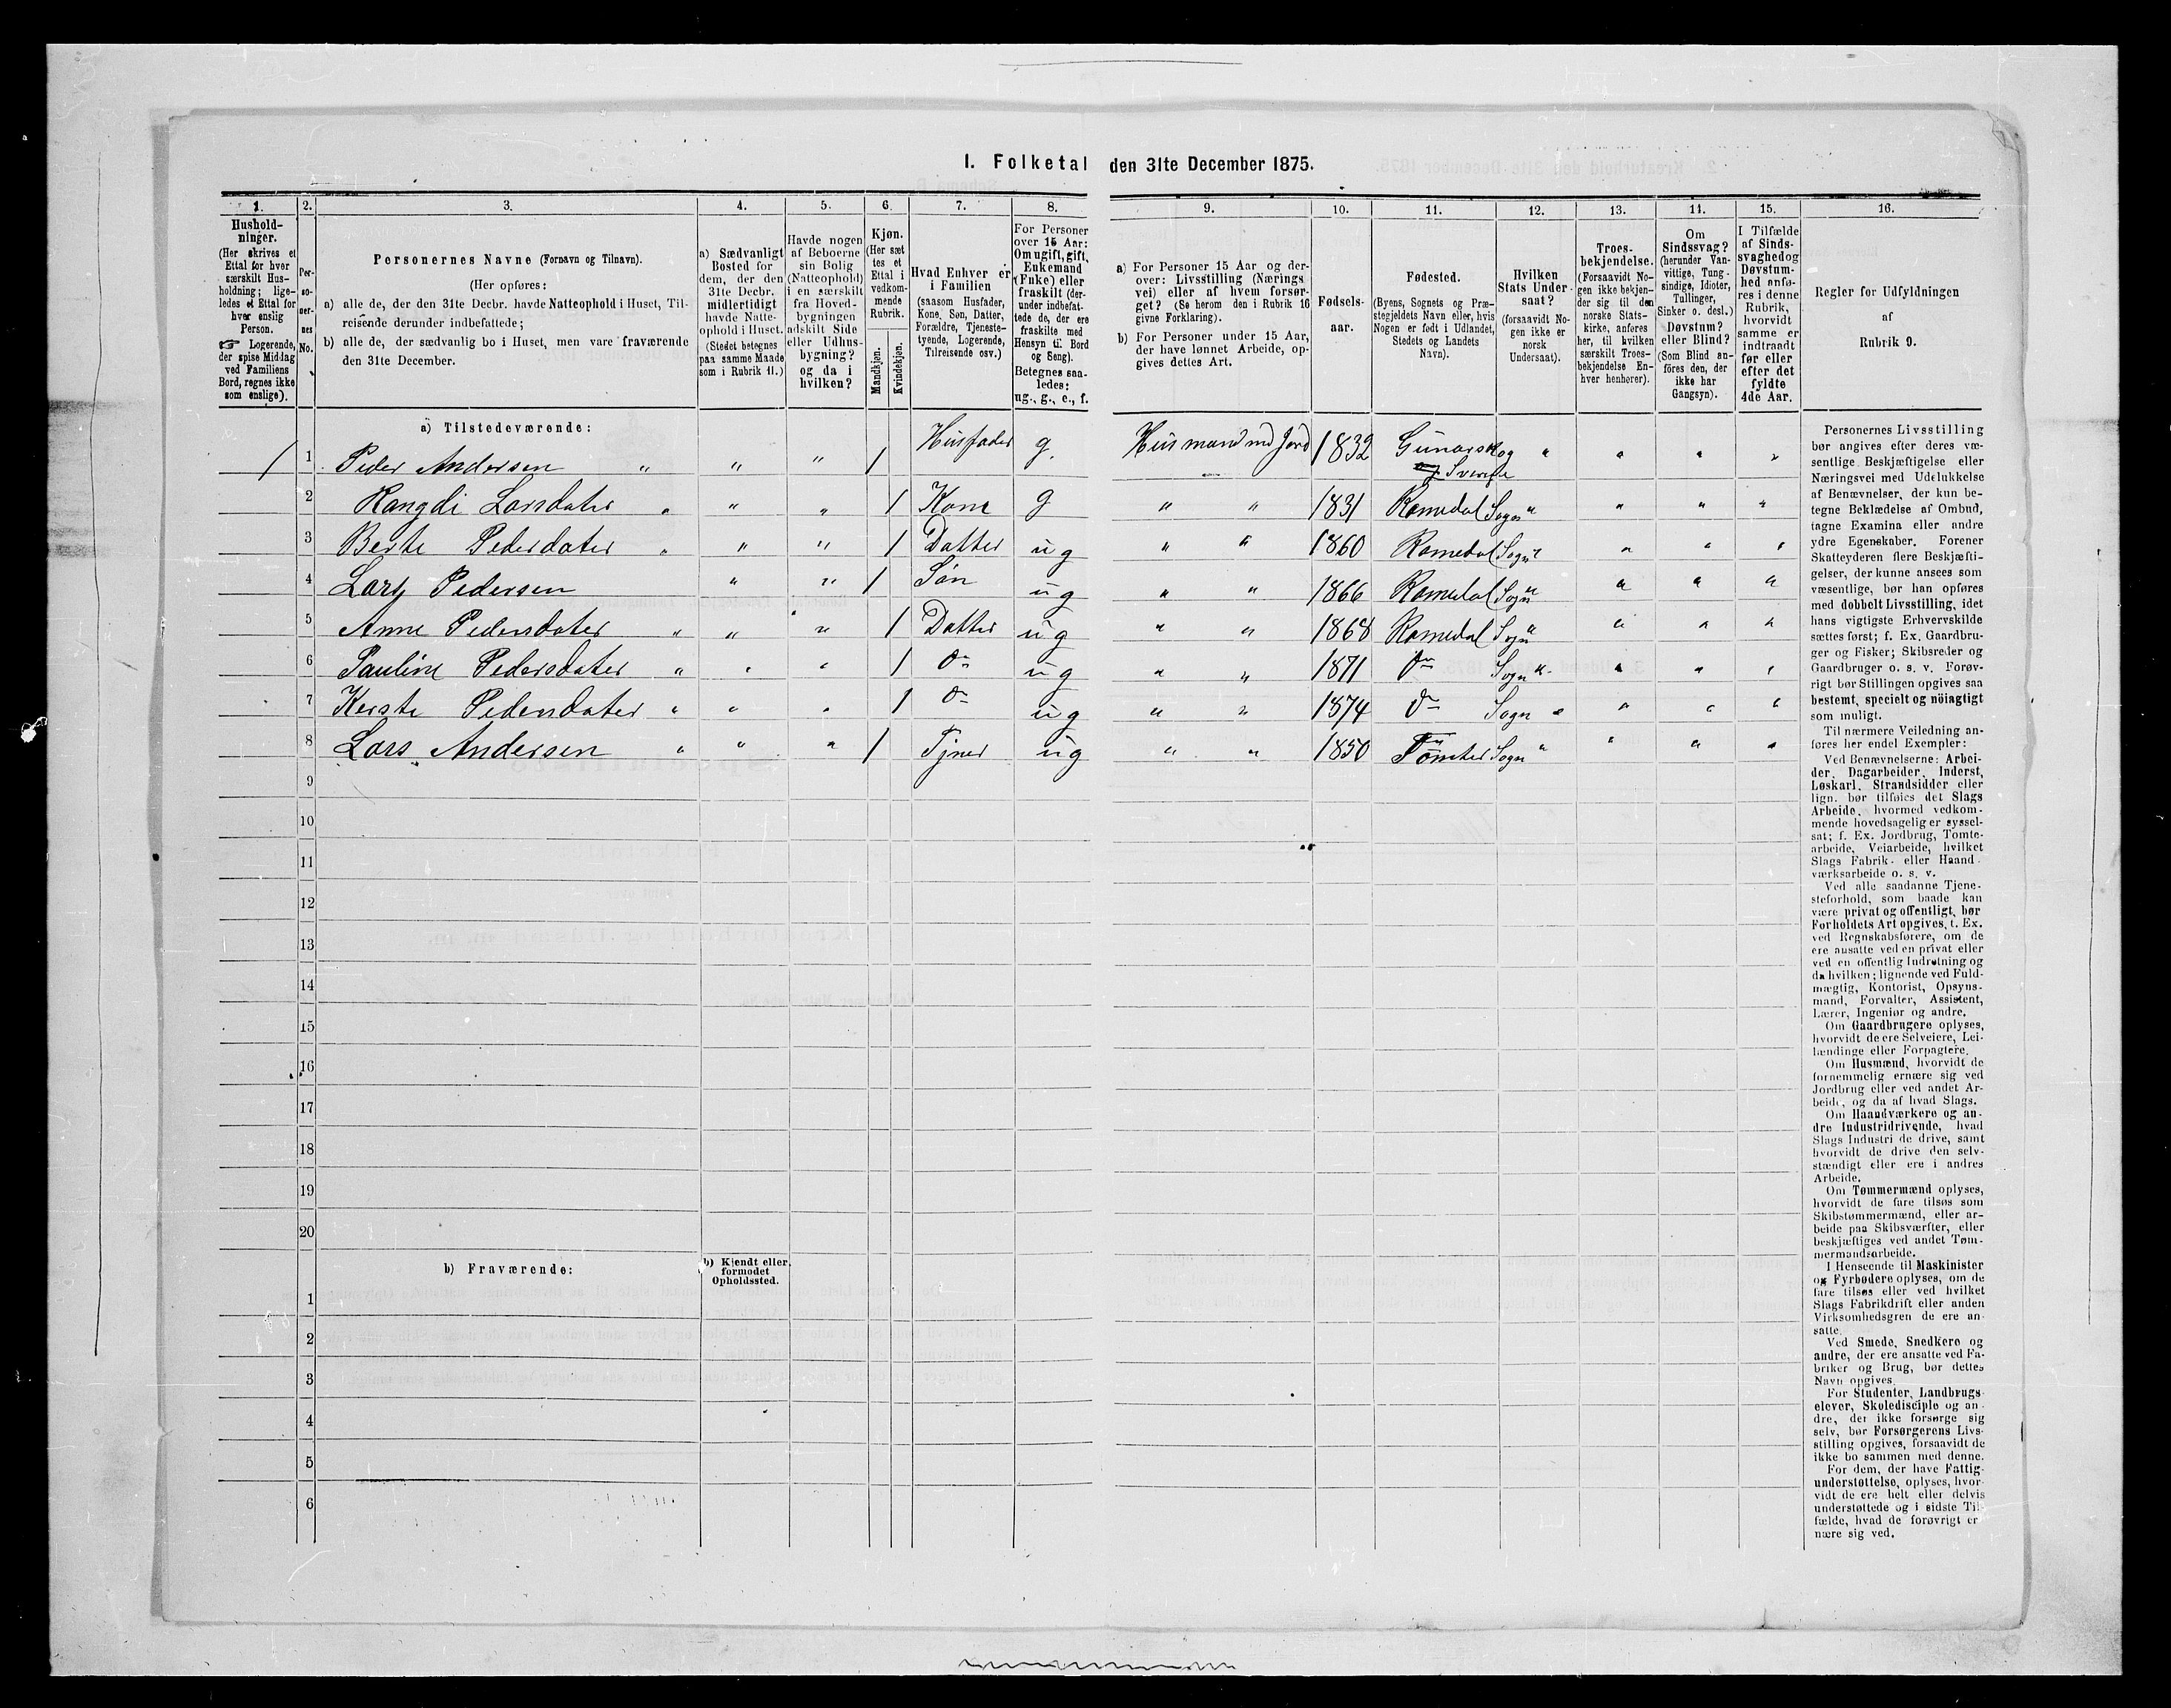 I. Folketal den 31te December 1875.
1. 2. 3. 4. 5. 6. 7. 8. 9. 10. 11. 12. 13. 14. 15. 16.
Hushold-
ninger.
(Her skrives et
Ettal for hver
særskilt Hus-
holdning; lige-
ledes et Ettal for
hver enslig
Person.
☞ Logerende,
der spise Middag
ved Familiens
Bord, regnes ikke
som enslige).
Per-
so-
ner-
nes
No.
Personernes Navne (Fornavn og Tilnavn).
(Her opføres:
a) alle de, der den 31te Decbr. havde Natteophold i Huset, Til-
reisende derunder indbefattede;
b) alle de, der sædvanlig bo i Huset, men vare fraværende
den 31te December.
a) Sædvanligt
Bosted for
dem, der den
31te Decbr.
midlertidigt
havde Natte-
ophold i Huset.
(Stedet betegnes
paa samme Maade
som i Rubrik 11.)
Havde nogen
af Beboerne
sin Bolig
(Natteophold)
i en særskilt
fra Hoved-
bygningen
adskilt Side
eller Udhus-
bygning?
og da i
hvilken?
Kjøn.
(Her sæt
tes et
Ettal i
vedkom-
mende
Rubrik.
Mandkjøn.
Kvindekjøn.
Hvad Enhver er
i Familien
(saasom Husfader,
Kone, Søn, Datter,
Forældre, Tjeneste-
tyende, Logerende,
Tilreisende osv.)
For Personer
over 15 Aar:
Om ugift, gift,
Enkemand
(Enke) eller
fraskilt (der-
under indbefat-
tede de, der ere
fraskilte med
Hensyn til Bord
og Seng).
Betegnes saa-
ledes:
ug., g., e., f.
a) For Personer 15 Aar og der-
over: Livsstilling (Nærings
vei) eller af hvem forsør-
get? (Se herom den i Rubrik 16
givne Forklaring).
b) For Personer under 15 Aar,
der have lønnet Arbeide, op-
gives dettes Art.
Fødsels-
aar.
Fødested.
(Byens, Sognets og Præ-
stegjeldets Navn eller, hvis
Nogen er født i Udlandet,
Stedets og Landets
Navn).
Hvilken
Stats Under-
saat?
(forsaavidt No-
gen ikke er
norsk
Undersaat).
Troes-
bekjendelse.
(Forsaavidt No-
gen ikke bekjen-
der sig til den
norske Stats-
kirke, anføres
her, til hvilken
særskilt Troes-
bekjendelse En-
hver henhører).
Om
Sindssvag?
(herunder Van-
vittige, Tung-
sindige, Idioter,
Tullinger,
Sinker o. desl.)
Døvstum?
eller Blind?
(Som Blind an-
føres den, der
ikke har
Gangsyn).
I Tilfælde
af Sinds-
svaghed og
Døvstum-
hed anfø-
res i denne
Rubrik,
hvorvidt
samme er
indtraadt
før eller
efter det
fyldte
4de Aar.
Regler for Udfyldningen
af
Rubrik 9.
a) Tilstedeværende:
1 1 Peder Andersen " " " 1 Husfader g. Husmand md Jord 1832 Gunarskog Sverge " " " "
2 Rangdi Larsdater " " " 1 Kone g " " 1831 Romedal Sogn " " " "
3 Berte Pedersdater " " " 1 Datter ug " " 1860 Romedal Sogn " " " "
4 Lars Pedersen " " 1 Søn ug " " 1866 Romedal Sogn " " " "
5 Anne Pedersdater " " " 1 Datter ug " " 1868 Romedal Sogn " " " "
6 Pauline Pedersdater " " " 1 do ug " " 1871 do Sogn " " " "
7 Kerste Pedersdater " " " 1 do ug " " 1874 do Sogn " " " "
8 Lars Andersen " " " 1 Tjner ug " " 1850 Tomter Sogn " " " "
9
10
11
12
13
14
15
16
17
18
19
20
b) Fraværende:
b) Kjendt eller
formodet
Opholdssted.
1
2
3
4
5
6
Personernes Livsstilling
bør angives efter deres væ-
sentlige Beskjæftigelse eller
Næringsvei med Udelukkelse
af Benævnelser, der kun be-
tegne Beklædelse af Ombud,
tagne Examina eller andre
ydre Egenskaber. Forener
Skatteyderen flere Beskjæfti-
gelser, der kunne ansees som
væsentlige, bør han opføres
med dobbelt Livsstilling, idet
hans vigtigste Erhvervskilde
sættes først; f. Ex. Gaardbru-
ger og Fisker; Skibsreder og
Gaardbruger o. s. v. Forøv-
rigt bør Stillingen opgives saa
bestemt, specielt og nöiagtigt
som muligt.
Til nærmere Veiledning an-
føres her endel Exempler:
Ved Benævnelserne: Arbei-
der, Dagarbeider, Inderst,
Løskarl, Strandsidder eller
lign. bør tilføies det Slags
Arbeide, hvormed vedkom-
mende hovedsagelig er syssel-
sat; f. Ex. Jordbrug, Tomte-
arbeide, Veiarbeide, hvilket
Slags Fabrik- eller Haand-
værksarbeide o. s. v.
Ved alle saadanne Tjene-
steforhold, som baade kan
være privat og offentligt, bør
Forholdets Art opgives, t. Ex.
ved Regnskabsførere, om de
ere ansatte ved en privat eller
ved en offentlig Indretning og
da hvilken; lignende ved Fuld-
mægtig, Kontorist, Opsyns-
mand, Forvalter, Assistent,
Lærer, Ingeniør og andre.
Om Gaardbrugere oplyses,
hvorvidt de ere Selveiere, Lei-
lændinge eller Forpagtere.
Om Husmænd, hvorvidt de
fornemmelig ernære sig ved
Jordbrug eller ved andet Ar-
beide, og da af hvad Slags.
Om Haandværkere og an-
dre Industridrivende, hvad
Slags Industri de drive, samt
hvorvidt de drive den selv-
stændigt eller ere i andres
Arbeide.
Om Tømmermænd oplyses,
hvorvidt de fare tilsøs som
Skibstømmermænd, eller ar-
beide paa Skibsværfter, eller
beskjæftiges ved andet Tøm-
mermandsarbeide.
I Henseende til Maskinister
og Fyrbødere oplyses, om de
fare tilsøs eller ved hvilket
Slags Fabrikdrift eller anden
Virksomhedsgren de ere an-
satte.
Ved Smede, Snedkere og
andre, der ere ansatte ved Fa-
briker og Brug, bør dettes
Navn opgives.
For Studenter, Landbrugs-
elever, Skoledisciple og an-
dre, der ikke forsørge sig
selv, bør Forsørgerens Livs-
stilling opgives, forsaavidt de
ikke bo sammen med denne.
For dem, der have Fattig-
understøttelse, oplyses, hvor-
vidt de ere helt eller delvis
understøttede og i sidste Til-
fælde, hvad de forøvrigt er-
nære sig ved.